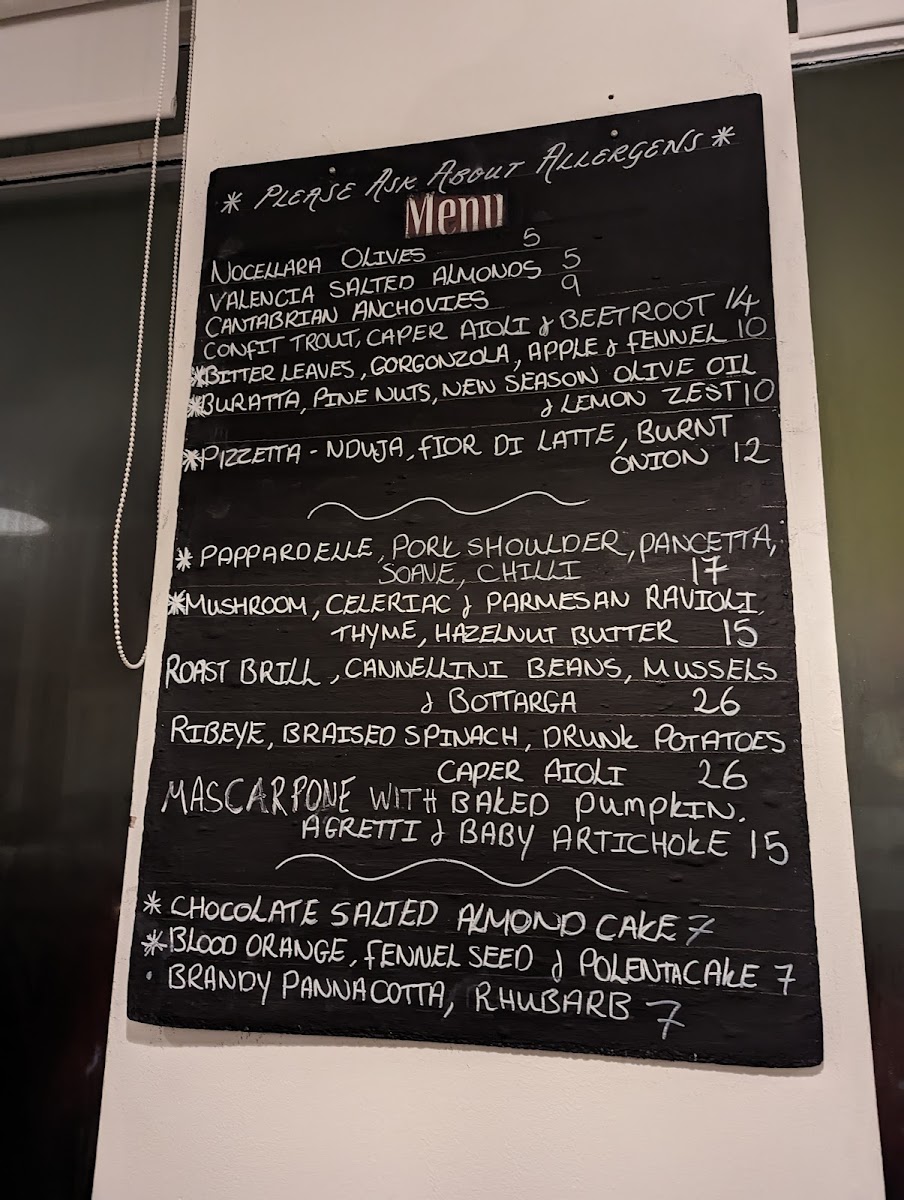 * PLEASE ASK ABOUT ALLERGENS *
Menu
NOCELLARA OLIVES 5
VALENCIA SALTED ALMONDS 5
CANTABRIAN ANCHOVIES 9
CONFIT TROUT, CAPER AIOLI & BEETROOT 14
*BITTER LEAVES, GORGONZOLA, APPLE & FENNEL 10
*BURATTA, PINE NUTS, NEW SEASON OLIVE OIL
& LEMON ZEST 10
*PIZZETTA - NDUJA, FIOR DI LATTE, BURNT
ONION 12
* PAPPARDELLE, PORK SHOULDER, PANCETTA,
SOAVE, CHILLI 17
*MUSHROOM, CELERIAC & PARMESAN RAVIOLI,
THYME, HAZELNUT BUTTER 15
ROAST BRILL, CANNELLINI BEANS, MUSSELS
& BOTTARGA 26
RIBEYE, BRAISED SPINACH, DRUNK POTATOES
CAPER AIOLI 26
MASCARPONE WITH BAKED PUMPKIN,
AGRETTI & BABY ARTICHOKE 15
* CHOCOLATE SALTED ALMOND CAKE 7
*BLOOD ORANGE, FENNEL SEED & POLENTA CAKE 7
· BRANDY PANNACOTTA, RHUBARB 7